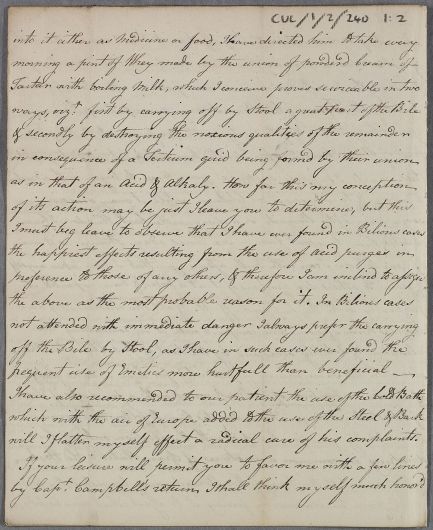 CUL/1/2/240 1:2
into it either as Medicine or food, I have directed him to take every
morning a pint of Whey made by the union of powderd Cream of
Tartar with boiling Milk, which I conceive proves serviceable in two
ways, vizt. first by carrying off by Stool a great part of the Bile
& secondly by destroying the noxious qualities of the remainder
in consequence of a Tertium quid being formd by their union
as in that of an Acid & Alkaly. How far this my conception
of its action may be just I leave you to determine, but this
I must beg leave to observe that I have ever found in Bilious cases
the happiest effects resulting from the use of acid purges in
preference to those of any others, & therefore I am inclind to assign
the above as the most probable reason for it. In Bilious cases
not attended with immediate danger I always prefer the carrying
off the Bile by Stool, as I have in such cases ever found the
frequent use of Emetics more hurtfull than beneficial —
I have also recommended to our patient the use of the Cold Bath
which with the air of Europe added to the use of the Steel & Bark
will I flatter myself effect a radical cure of his complaints.
If your leisure will permit you to favor me with a few lines
by Capt. Campbell's return I shall think myself much honor'd